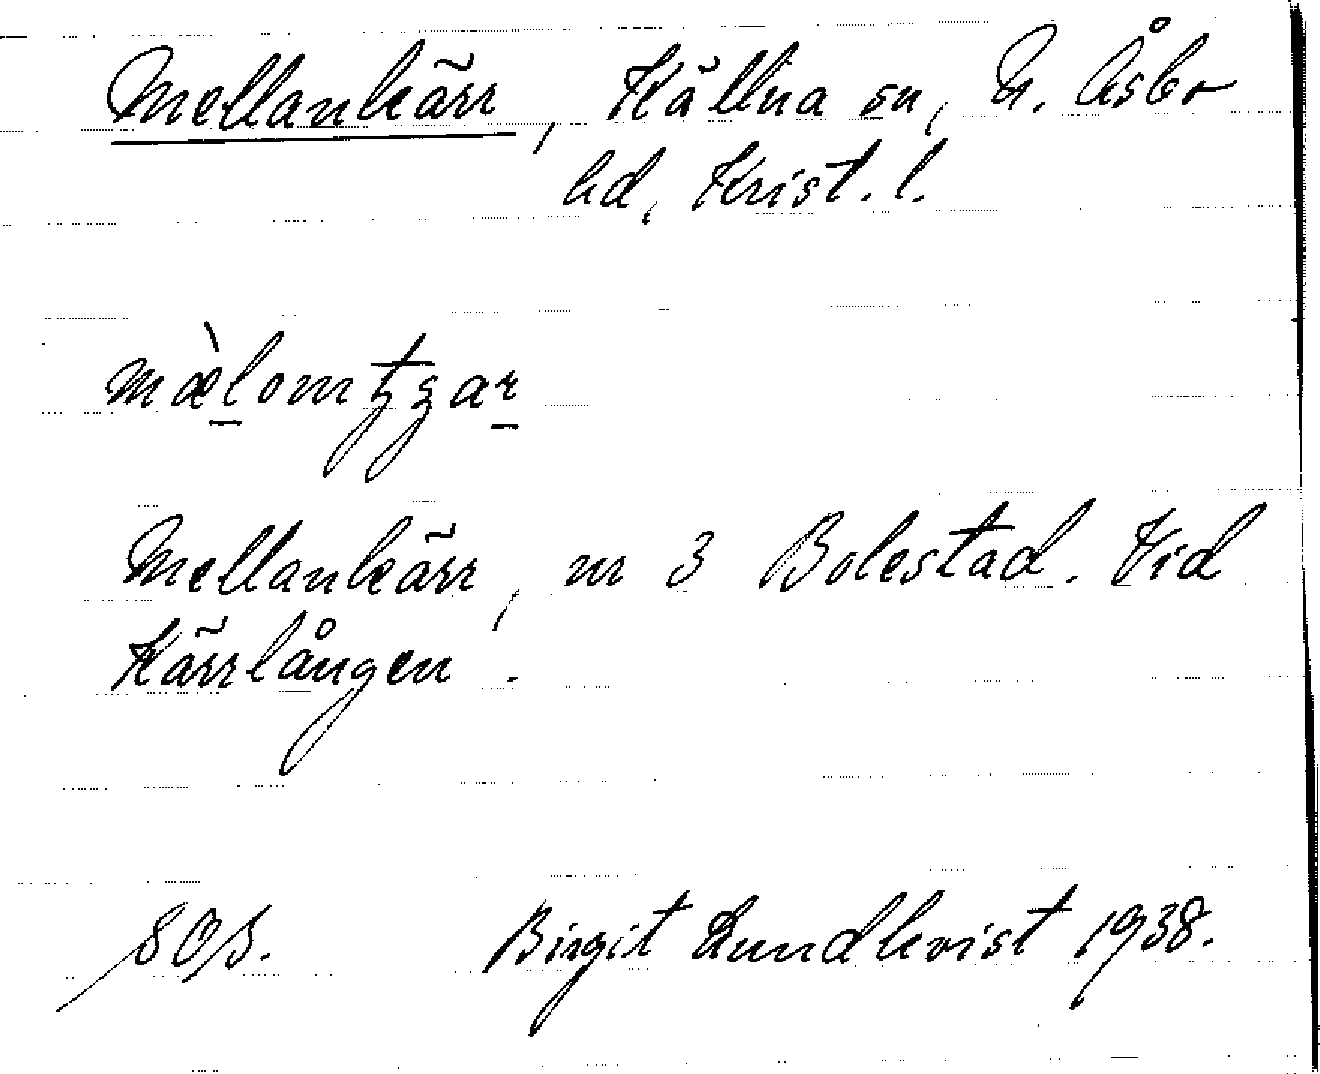 Mellankärr, Källna sn, N. Åsbo
hd, Krist. l.
Mellankärr, nr 3 Bolestad. Vid
Kärrlången.
Birgit Lundkvist 1938.